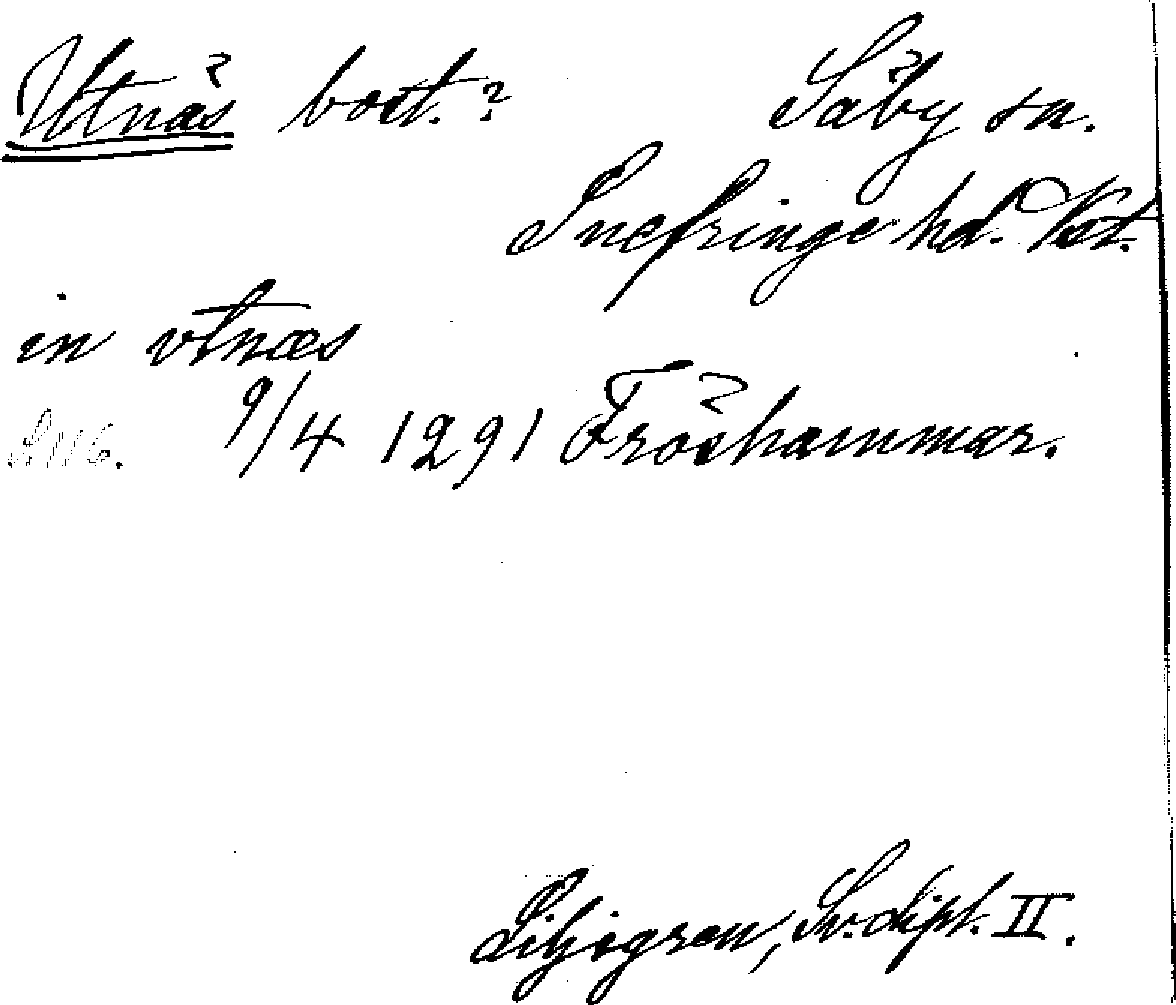 Utnäs bort.? Säby sn.
Snefringe hd. Vst.
in vtnæs
S. 116. 9/4 1291 Fröshammar.
Liljegren, Sv. dipl. II.